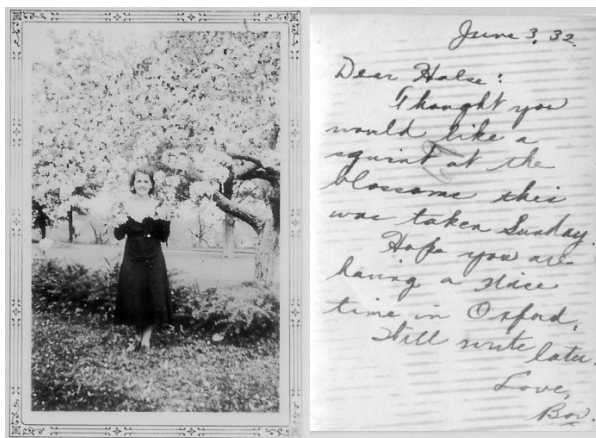 June 3, 32.
Dear Halse:
Thought you
would like a
squint at the
blossoms this
was taken Sunday.
Hope you are
having a nice
time in Oxford.
Will write later.
Love,